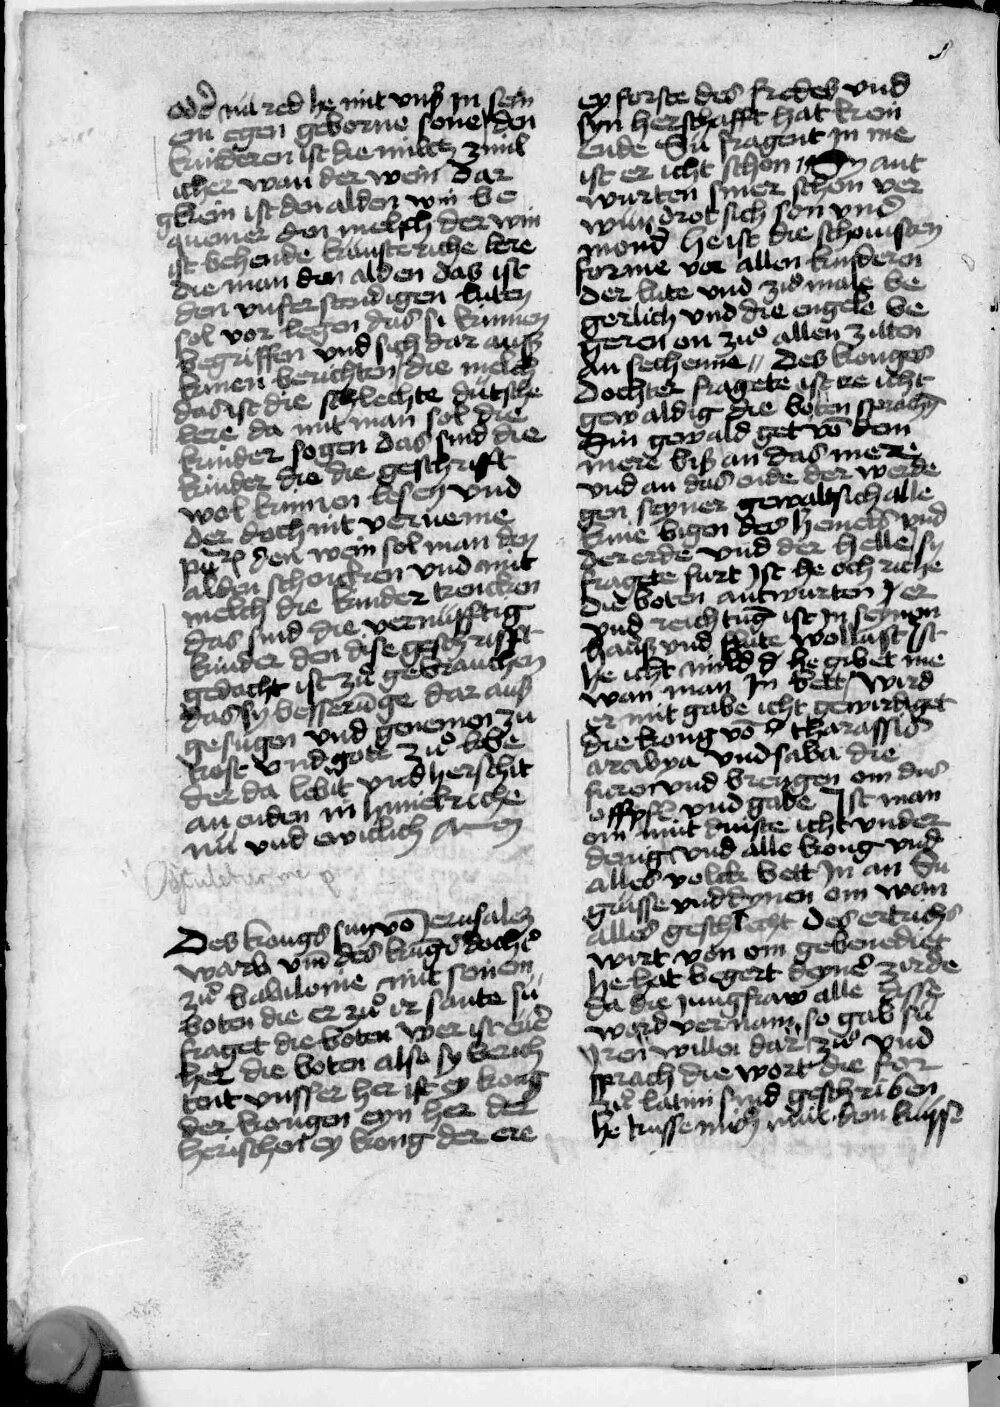 oder nu red he mit uns in sein
ein egen geborne sone / den
kinderen ist die milch zimli
icher wan der wein Dar
gkein ist den alden win be
quemer den melch der win
ist behende kunsteriche lere
die man den alden das ist
den vnstendigen luten
sol vor legen das si kunnen
begriffen vnd sich dar auß
kunen berichten / die melch
das ist die schlechte dutsche
lere da mit man sol die
kinder sogen das sind die
kinder die die geschrifft
wol kunnen lesen vnd
der doch nit verneme
den wein sol man den
alden schencken vnd mit
melch die kinder trencken
das sind die vernufftig
kinder den dise geschrifft
gedacht ist zu gebrauchen
das sy besserunge dar auß
gesugen vnd genemen zu
trost vnd gote zuo lobe
der da lebit vnd herschit
an enden in himelriche
nu vnd ewiclich amen
Osculetur me
Des kongs sun von Jerusalem
warb vm des kungs dochter
zuo babilonie mit seinen
boten die er zuo ir sante su
fraget die boten wer ist euer
her die boten also sy berich
tent vnsser her ist ey kong
der kongen eyn her der
herischer ey kong der ere
ey forste des fredes vnd
syn herschafft hat kein
ende Su fragent in me
ist er icht schon Sy ant
wurten siner schon ver
wundrot sich son vnd
mond he ist die schonisten
forme vor allen kinderen
der lute vnd zuo male be
gerlich vnd die engele be
geren on zuo allen zitten
an sechenne // Des konges
dochter fragete ist er icht
gewaldig die boten sprachen
Sin gewald get von dem
mere biß an das mere
vnd an das ende der werde
gen seyner gewaltsich alle
knie bigen des hemels vnd
der erde vnd der helle / sy
fragete furt Ist he och riche
die boten antwurten / er
vnd reichtung ist in seinen
hauß vnd gute wollust / ist
he icht mild he gibet me
wan man in bett / wird
er mit gabe icht gewirdiget
die kong von tharassis
arabya vnd saba die
furen vnd brengen om das
opffer vnd gabe Ist man
om mit dinste icht vnder
denig vnd alle kong vnd
alles volck bett in an Su
grusse vnd dynen om wan
alles geschlecht des ertrichs
wirt von om gebenediet
he hat begert deyner zirde
da die jungfraw alle disse
word vernam so gab su
Iren willen dar zuo vnd
sprach die wort die for
zu latin sind geschriben
he kusse mich mit dem kusse